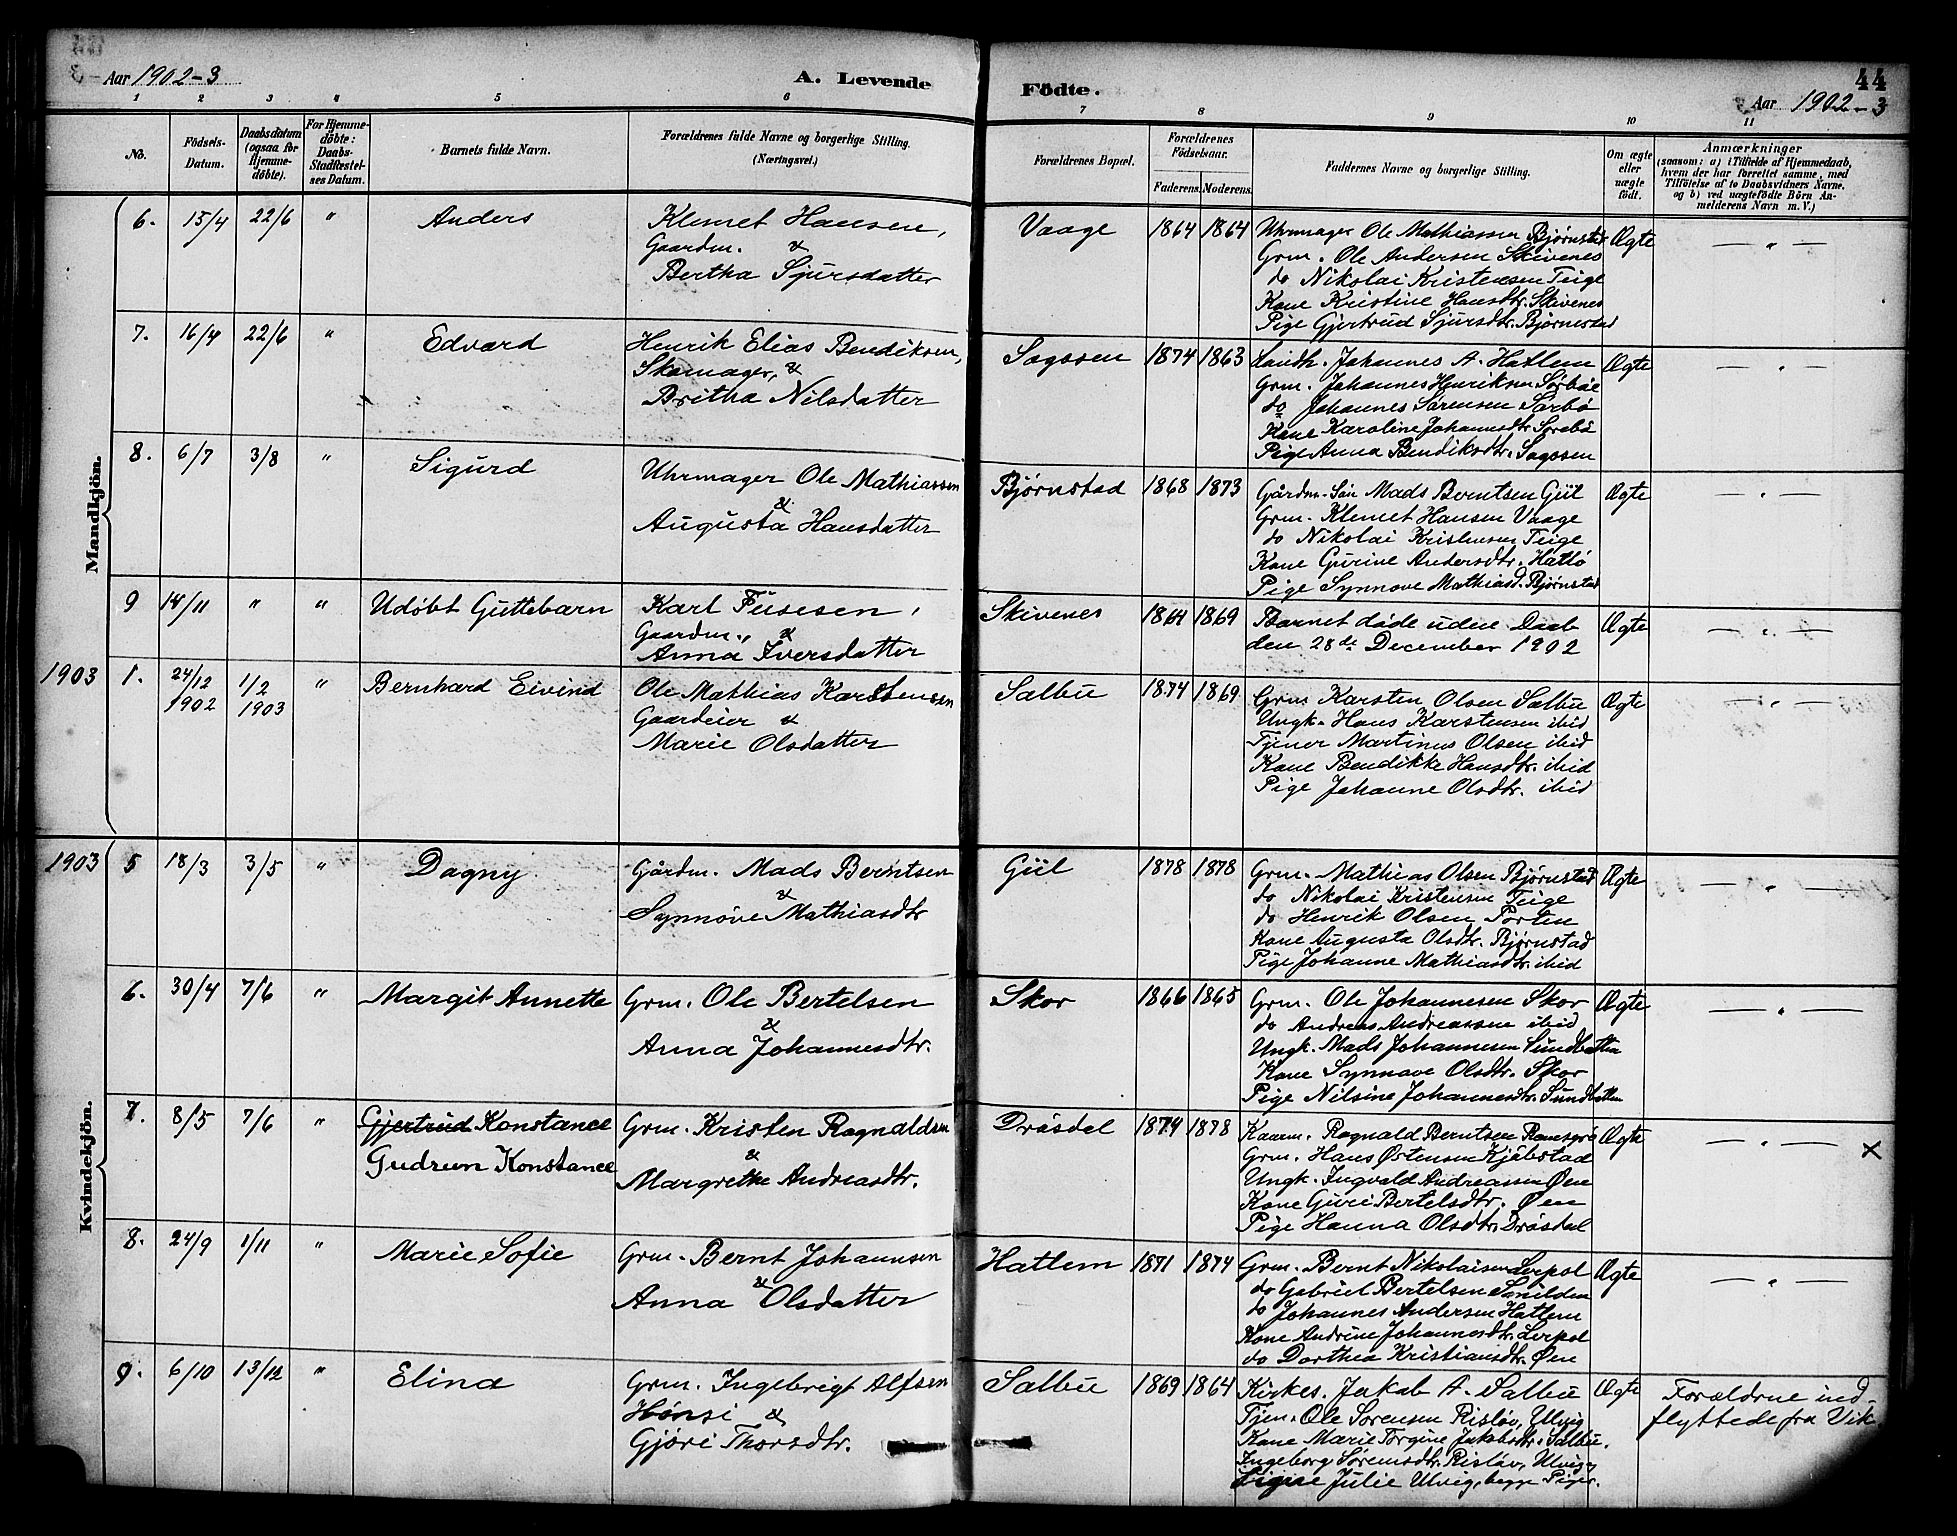 Aar 1902-3
A. Levende Födte.
44
Aar 1902-3
1 2 3 4 5 6 7 8 9 10 11
No.
Födsels-Datum.
Daabsdatum (ogsaa for Hjemme-döbte).
For Hjemme-döbte: Daabs-Stadfæstel-ses Datum.
Barnets fulde Navn.
Forældrenes fulde Navne og borgerlige Stilling.
(Næringsvei.)
Forældrenes Bopæl.
Forældrenes Födselsaar.
Faderens. Moderens.
Faddernes Navne og borgerlige Stilling.
Om ægte eller uægte født.
Anmærkninger
(saasom: a) i Tilfælde af Hjemmedaab,
hvem der har forrettet samme, med
Tilföielse af to Daabsvidners Navne,
og b) ved uægtefødte Börn An-
melderens Navn m. V.)
Mandkjön.
6. 15/4 22/6 " Anders
Klemet Hansen,
Gaardm. &
Bertha Sjursdatter
Vaage 1864 1864
Uhrmager Ole Mathiassen Bjørnstad
Grm. Ole Andersen Skivenes
do Nikolai Kristensen Teige
Kone Kristine Hansdtr. Skivenes
Pige Gjertrud Sjursdtr. Bjørnestad
Ægte — " —
7. 16/4 22/6 " Edvard
Henrik Elias Bendiksen,
Skomager, &
Britha Nilsdatter
Sagosen 1874 1863
Landh. Johannes A. Hatlem
Grm. Johannes Henriksen Sørbøe
do Johannes Sørensen Sørbø
Kone Karoline Johannesdtr. Sørebø
Pige Anna Bendiksdtr. Sagosen
Ægte — " —
8. 6/7 3/8 " Sigurd
Uhrmager Ole Mathiassen
&
Augusta Hansdatter
Bjørnstad 1868 1873
Gårdm.-Søn Mads Berntsen Giil
Grm. Klemet Hansen Vaage
do Nikolai Kristensen Teige
Kone Gurine Andersdtr. Hatlø
Pige Synnøve Mathiasd. Bjørnstad
Ægte — " —
9 14/11 " " Udøbt Guttebarn
Karl Fusesen,
Gaardm., &
Anna Iversdatter
Skivenes 1864 1869
Barnet døde uden Daab
den 28de December 1902
Ægte — " —
1903 1. 24/12 1902 1/2 1903 " Bernhard Eivind
Ole Mathias Karstensen
Gaardeier &
Marie Olsdatter
Salbu 1874 1869
Grm Karsten Olsen Salbu
Ungk. Hans Karstensen ibid
Tjener Martinus Olsen ibid
Kone Bendikke Hansdtr. ibid
Pige Johanne Olsdtr. ibid
Ægte — " —
Kvindekjön.
1903 5 18/3 3/5 " Dagny
Gårdm. Mads Berntsen
&
Synnøve Mathiasdtr
Giil 1878 1878
Grm. Mathias Olsen Bjørnstad
do Nikolai Kristensen Teige
do Henrik Olsen Porten
Kone Augusta Olsdtr. Bjørnstad
Pige Johanne Mathiasdtr. ibid
Ægte — " —
6. 30/4 7/6 " Margit Annette
Grm. Ole Bertelsen
&
Anna Johannesdtr.
Skor 1866 1865
Grm. Ole Johannesen Skor
do Andreas Andreassen ibid
Ungk. Mads Johannesen Sundbotten
Kone Synnøve Olsdtr. Skor
Pige Nilsine Johannesdtr. Sundbotten
Ægte — " —
7. 8/5 7/6 " Gjertrud Konstance
Gudrun Konstance
Grm. Kristen Ragnaldsen
&
Margrethe Andreasdtr.
Dråsdal 1874 1878
Kaarm. Ragnald Berntsen
Grm. Hans Østensen Kjåbstad
Ungk. Ingvald Andreassen Øen
Kone Guri Bertelsdtr. Øen
Pige Hanna Olsdtr. Dråsdal
Ægte — " — X
8. 24/9 1/11 " Marie Sofie
Grm. Bernt Johannsen
&
Anna Olsdatter
Hatlem 1871 1874
Grm. Bernt Nikolaisen Leepol
do Gabriel Bertelsen
do Johannes Andersen Hatlem
Kone Andrine Johannesdtr. Leepol
do Dorthea Kristiansdtr. Øen
Ægte — " —
9. 6/10 13/12 " Elina
Grm. Ingebrigt Alfsen
Hønsi &
Gjøri Thorsdtr.
Salbu 1869 1864
Kirkes. Jakob A. Salbu
Tjen. Ole Sørensen Risløv, Ulvig
Kone Marie Torgine Jakobsdtr. Salbu.
Ingeborg Sørensdtr. Risløv, Ulvig
Signe Julie Ulvig, begge Piger.
Ægte
Forældrene ind-
flyttede fra Vik.